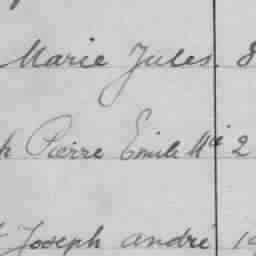 Marie Jules 8
h Pierre Emile Mie 2
Joseph andré 19